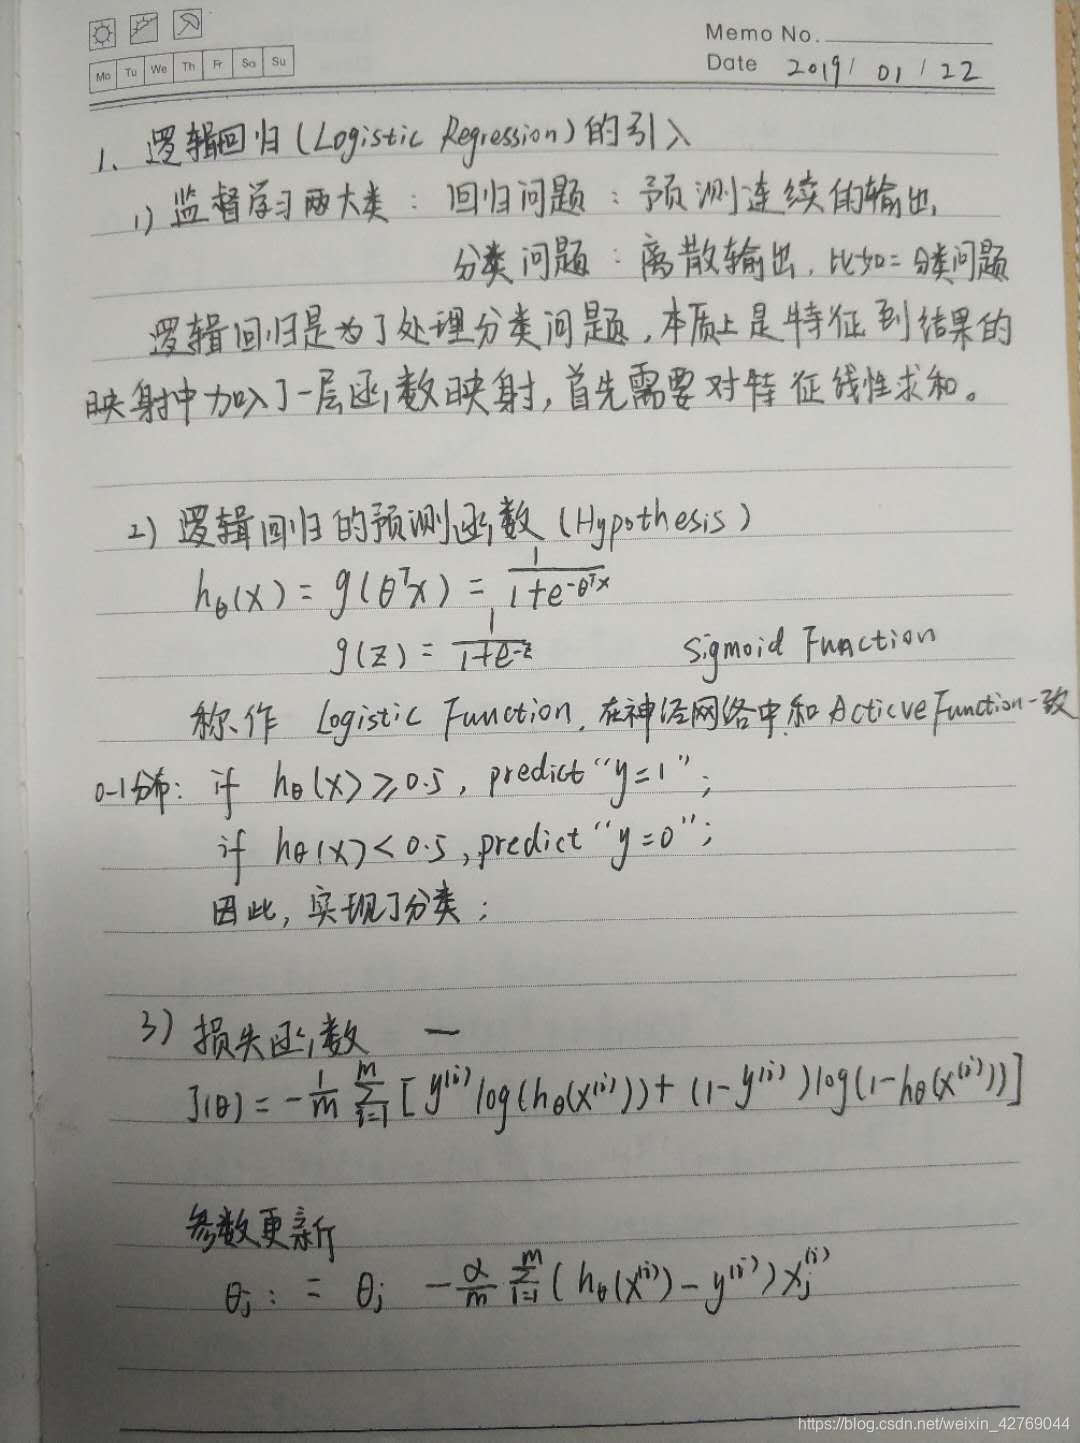 Memo No.
Mo Tu We Th Fr Sa Su
Date 2019/ 01 / 22
1、逻辑回归(Logistic Regression)的引入
1) 监督学习两大类：回归问题：预测连续的输出,
分类问题：离散输出, 比如二分类问题
逻辑回归是为了处理分类问题,本质上是特征到结果的
映射中加入了一层函数映射,首先需要对特征线性求和。
2) 逻辑回归的预测函数(Hypothesis)
hθ(x) = g(θᵀx) = 1/(1+e^(-θᵀx))
g(z) = 1/(1+e^(-z)) Sigmoid Function
称作 Logistic Function, 在神经网络中和 Acticve Function一致
0-1分布: if hθ(x)≥0.5, predict "y=1";
if hθ(x)<0.5, predict "y=0";
因此, 实现了分类;
3) 损失函数 —
J(θ) = -1/m Σ_{i=1}^{m} [y⁽ⁱ⁾log(hθ(x⁽ⁱ⁾)) + (1-y⁽ⁱ⁾)log(1-hθ(x⁽ⁱ⁾))]
参数更新
θj := θj - α/m Σ_{i=1}^{m} (hθ(x⁽ⁱ⁾) - y⁽ⁱ⁾)xj⁽ⁱ⁾
https://blog.csdn.net/weixin_42769044